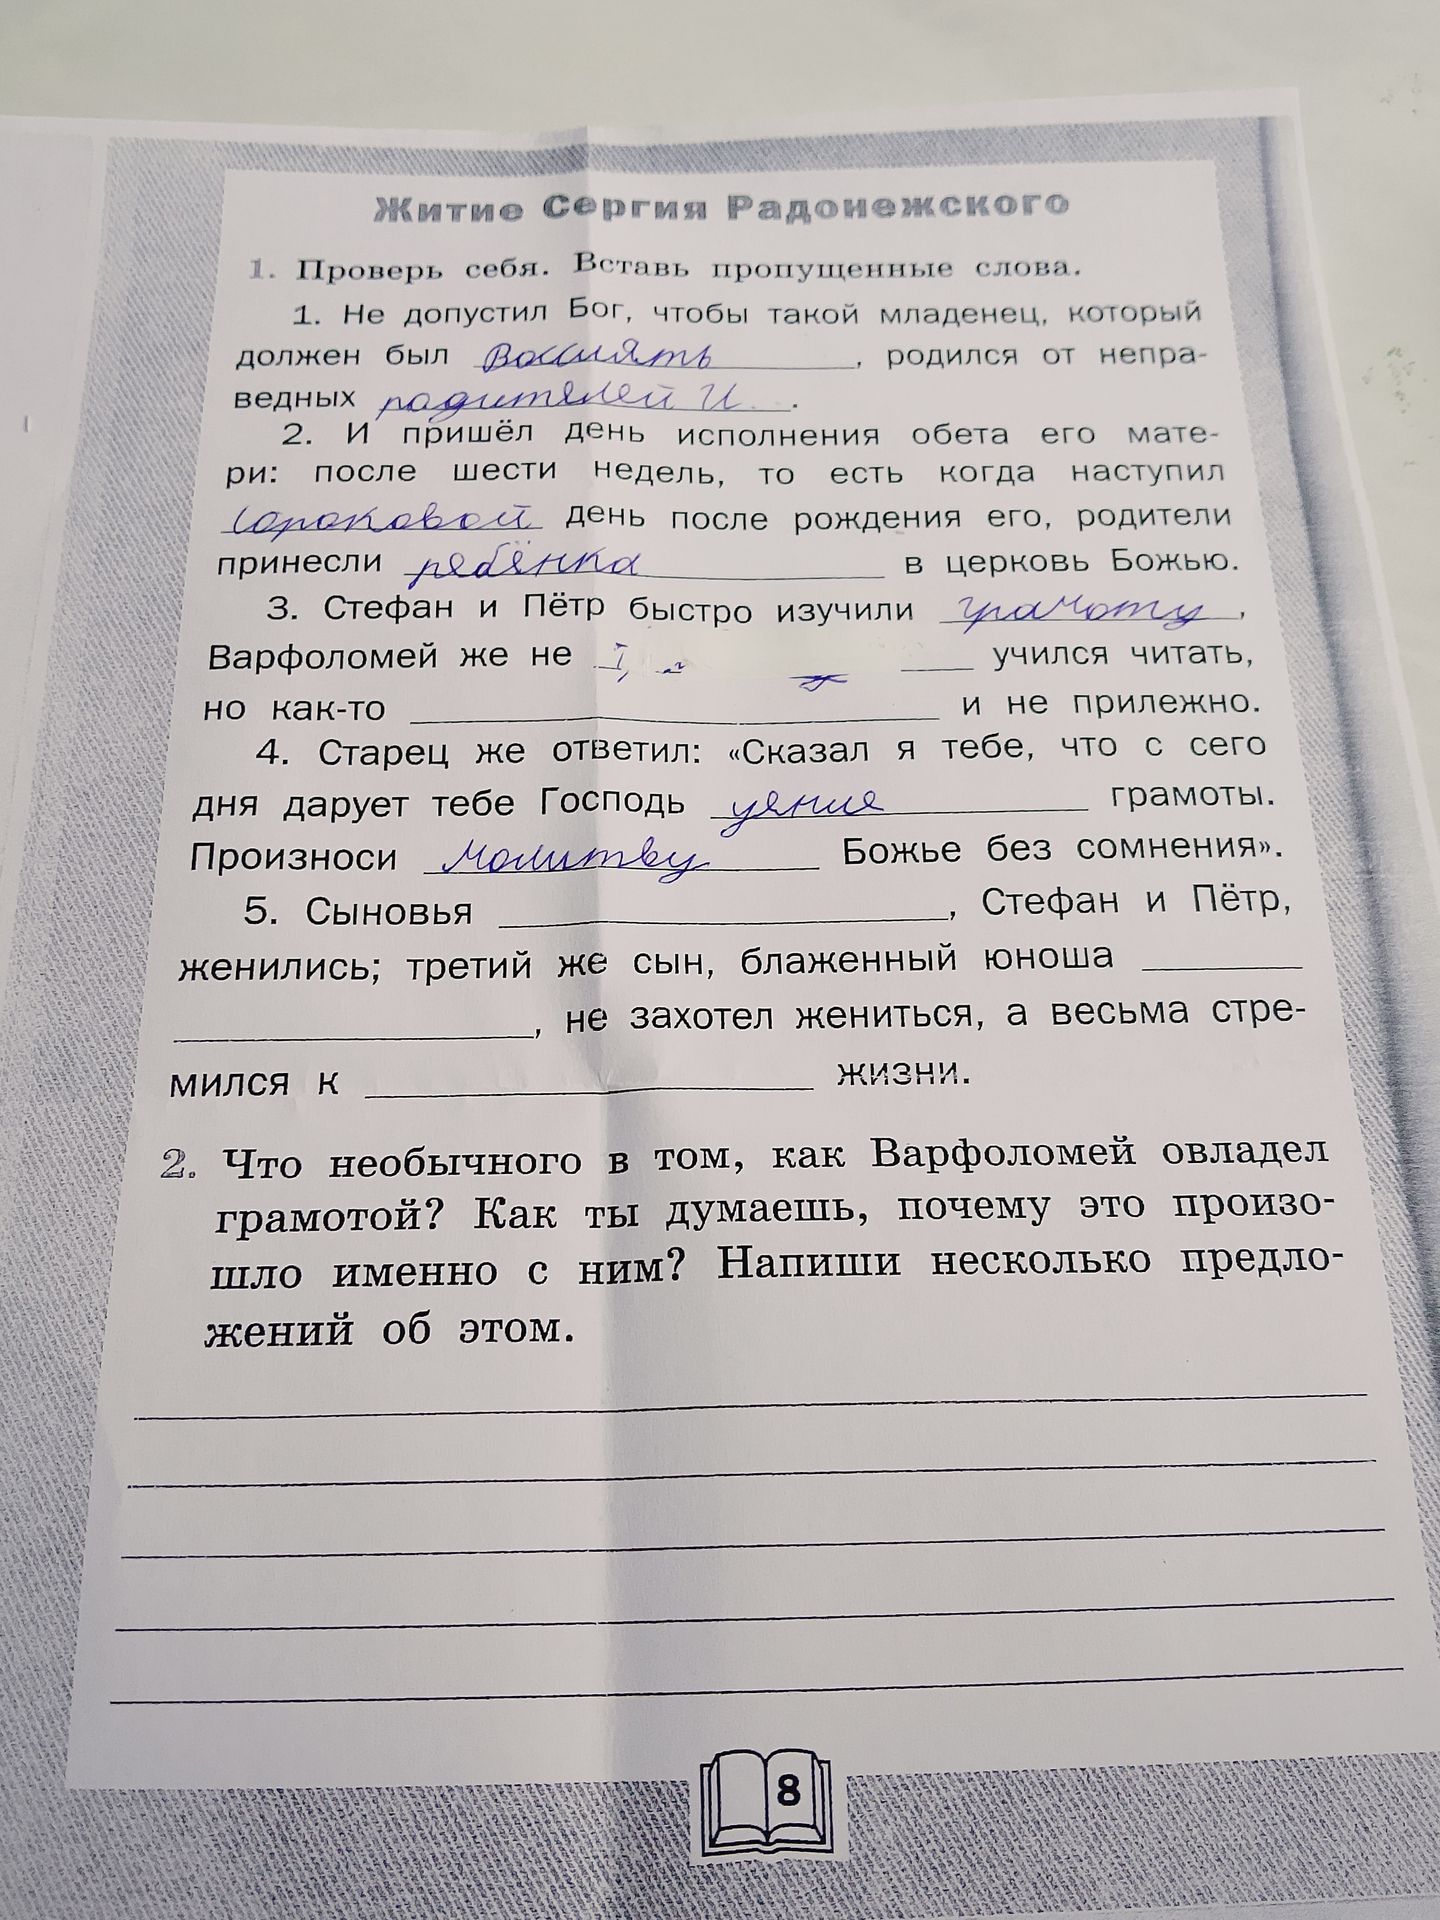 Житие Сергия Радонежского
1. Проверь себя. Вставь пропущенные слова.
1. Не допустил Бог, чтобы такой младенец, который
должен был воссиять, родился от непра-
ведных родителей И.
2. И пришёл день исполнения обета его мате-
ри: после шести недель, то есть когда наступил
сороковой день после рождения его, родители
принесли ребёнка в церковь Божью.
3. Стефан и Пётр быстро изучили грамоту,
Варфоломей же не учился читать,
но как-то и не прилежно.
4. Старец же ответил: «Сказал я тебе, что с сего
дня дарует тебе Господь грамоты.
Произноси молитву Божье без сомнения».
5. Сыновья , Стефан и Пётр,
женились; третий же сын, блаженный юноша
, не захотел жениться, а весьма стре-
мился к жизни.
2. Что необычного в том, как Варфоломей овладел
грамотой? Как ты думаешь, почему это произо-
шло именно с ним? Напиши несколько предло-
жений об этом.
8